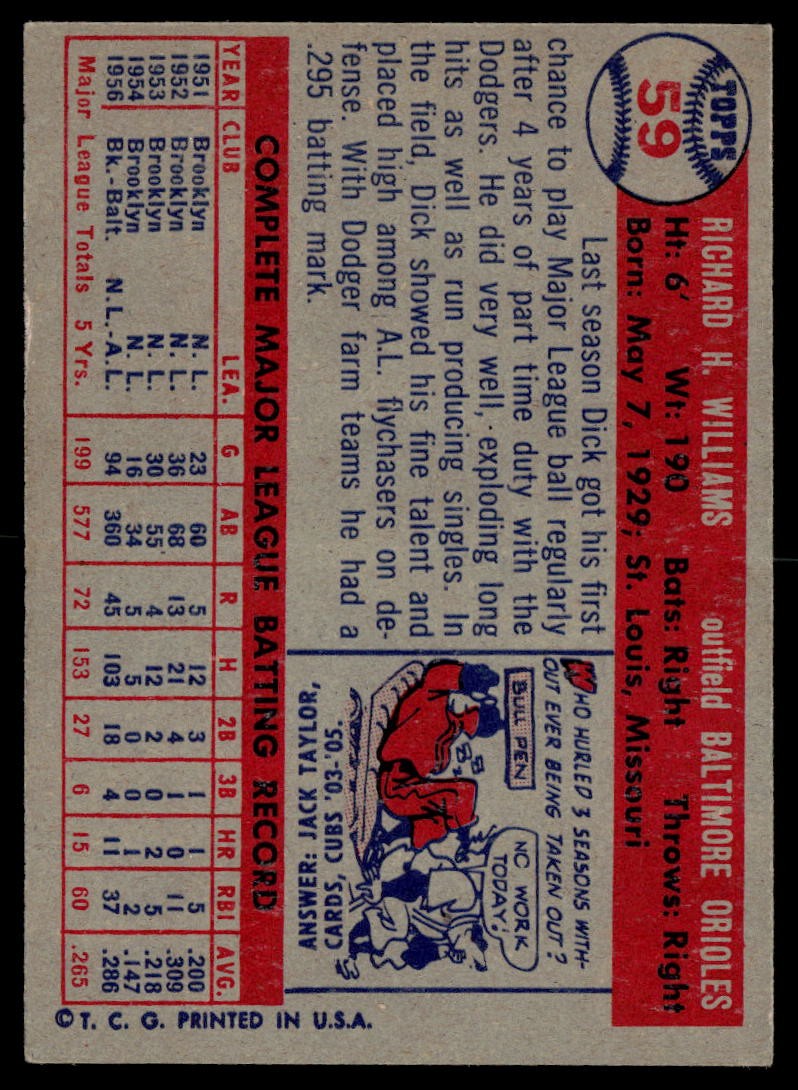 TOPPS
59
RICHARD H. WILLIAMS outfield BALTIMORE ORIOLES
Ht: 6' Wt: 190 Bats: Right Throws: Right
Born: May 7, 1929; St. Louis, Missouri
Last season Dick got his first
chance to play Major League ball regularly
after 4 years of part time duty with the
Dodgers. He did very well, exploding long
hits as well as run producing singles. In
the field, Dick showed his fine talent and
placed high among A.L. flychasers on de-
fense. With Dodger farm teams he had a
.295 batting mark.
WHO HURLED 3 SEASONS WITH-
OUT EVER BEING TAKEN OUT?
BULL PEN
NO WORK
TODAY!
ANSWER: JACK TAYLOR,
CARDS, CUBS, '03-'05.
COMPLETE MAJOR LEAGUE BATTING RECORD
YEAR CLUB LEA. G AB R H 2B 3B HR RBI AVG.
1951 Brooklyn N. L. 23 60 5 12 3 1 1 5 .200
1952 Brooklyn N. L. 36 68 13 21 4 1 0 11 .309
1953 Brooklyn N. L. 30 55 4 12 2 0 2 5 .218
1954 Brooklyn N. L. 16 34 5 5 0 0 1 2 .147
1956 Bk.-Balt. N.L.-A.L. 94 360 45 103 18 4 11 37 .286
Major League Totals 5 Yrs. 199 577 72 153 27 6 15 60 .265
© T. C. G. PRINTED IN U.S.A.